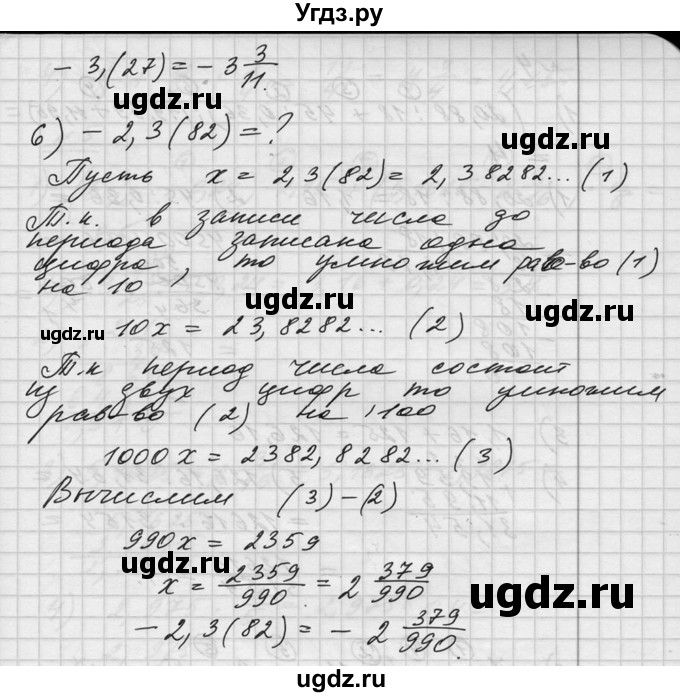 Угдз.ру
- 3,(27) = - 3 3/11.
uGdz.ru
uGdz.ru
6) - 2,3(82) = ?
Пусть x = 2,3(82) = 2,38282... (1)
Т.к. в записи числа до
периода записана одна
цифра, то умножим рав-во (1)
на 10
uGdz.ru
uGdz.ru
10x = 23,8282... (2)
Т.к период числа состоит
из двух цифр то умножим
рав-во (2) на 100
1000x = 2382,8282... (3)
Вычислим (3)-(2)
990x = 2359
uGdz.ru
uGdz.ru
x = 2359/990 = 2 379/990
- 2,3(82) = - 2 379/990.
uGdz.ru